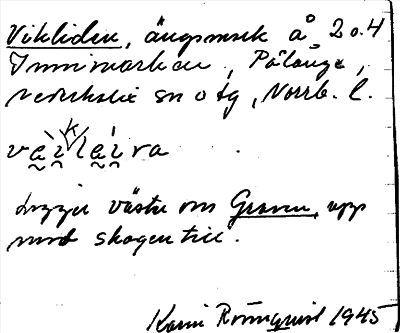 Vikliden, ängsmark å 2 o. 4
Innimarken, Pålänge,
Nederkalix sn o tg, Norrb. l.
Ligger väster om Graven, upp
mot skogen till.
Karin Rönnqvist 1945